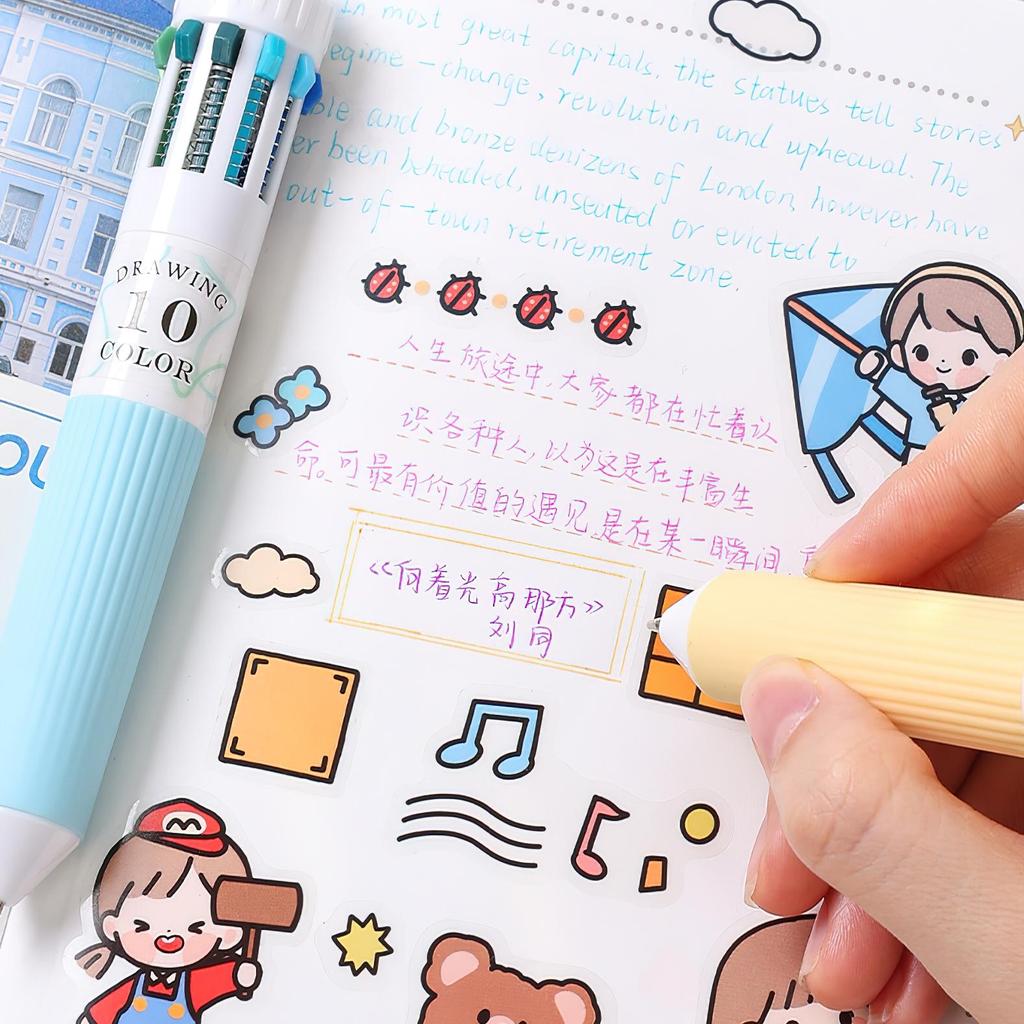 In most great capitals, the statues tell stories
regime-change, revolution and upheaval. The
and bronze denizens of London, however, have
been beheaded, unseated or evicted to
out-of-town retirement zone.
DRAWING
10
COLOR
人生旅途中,大家都在忙着认
识各种人,以为这是在丰富生
命。可最有价值的遇见是在某一瞬间,
《向着光亮那方》
刘同
OU
M